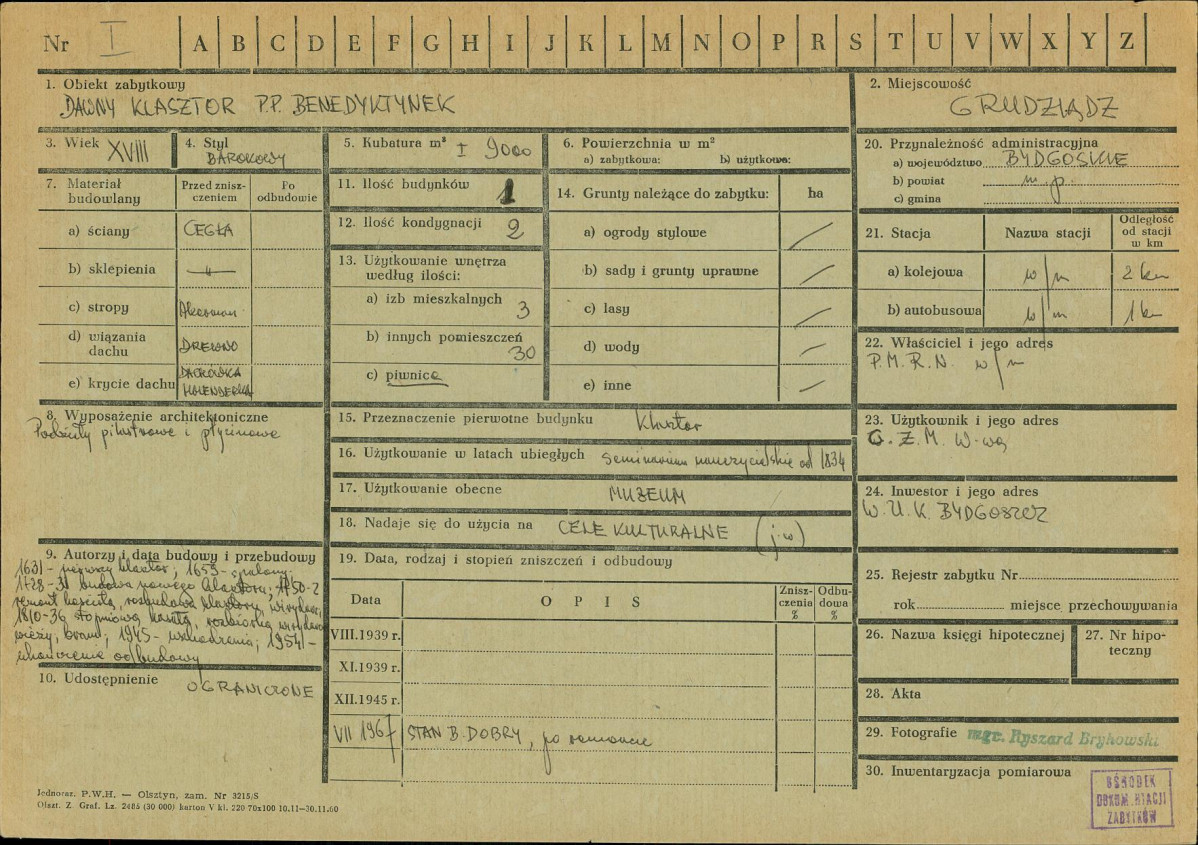 Nr I A B C D E F G H I J K L M N O P R S T U V W X Y Z
1. Obiekt zabytkowy
DAWNY KLASZTOR P.P. BENEDYKTYNEK
2. Miejscowość
GRUDZIĄDZ
3. Wiek XVIII
4. Styl
BAROKOWY
5. Kubatura m³ I 9000
6. Powierzchnia w m²
a) zabytkowa: b) użytkowa:
7. Materiał budowlany
Przed zniszczeniem
Po odbudowie
a) ściany CEGŁA
b) sklepienia —"—
c) stropy
d) wiązania dachu DREWNO
e) krycie dachu DACHÓWKA HOLENDERKA
8. Wyposażenie architektoniczne
Podziały pilastrowe i płycinowe
9. Autorzy i data budowy i przebudowy
1631 - pierwszy klasztor; 1659 - spalony
1728-31 budowa nowego klasztoru; 1750-2
remont kościoła, rozbudowa klasztoru,
1810-36 stopniowa kasata, rozbiórka
wieży, bramy; 1945 - uszkodzenia; 1954 -
ukończenie odbudowy
10. Udostępnienie
OGRANICZONE
11. Ilość budynków 1
12. Ilość kondygnacji 2
13. Użytkowanie wnętrza
według ilości:
a) izb mieszkalnych
3
b) innych pomieszczeń
30
c) piwnice
14. Grunty należące do zabytku: ha
a) ogrody stylowe /
b) sady i grunty uprawne /
c) lasy /
d) wody /
e) inne /
15. Przeznaczenie pierwotne budynku Klasztor
16. Użytkowanie w latach ubiegłych seminarium nauczycielskie od 1834
17. Użytkowanie obecne MUZEUM
18. Nadaje się do użycia na CELE KULTURALNE (j.w)
19. Data, rodzaj i stopień zniszczeń i odbudowy
Data OPIS Zniszczenia % Odbudowa %
VIII.1939 r.
XI.1939 r.
XII.1945 r.
VII 1967 STAN B. DOBRY, po remoncie
20. Przynależność administracyjna
a) województwo BYDGOSKIE
b) powiat m.p.
c) gmina
21. Stacja Nazwa stacji Odległość od stacji w km
a) kolejowa w/m 2 km
b) autobusowa w/m 1 km
22. Właściciel i jego adres
P.M.R.N. w/m
23. Użytkownik i jego adres
W-wa
24. Inwestor i jego adres
W.U.K. BYDGOSZCZ
25. Rejestr zabytku Nr
rok miejsce przechowywania
26. Nazwa księgi hipotecznej
27. Nr hipoteczny
28. Akta
29. Fotografie mgr. Ryszard Brykowski
30. Inwentaryzacja pomiarowa
OŚRODEK
DOKUMENTACJI
ZABYTKÓW
Jednoraz. P.W.H. — Olsztyn, zam. Nr 3215/S
Olszt. Z. Graf. Lz. 2485 (30 000) karton V kl. 220 70x100 10.11—30.11.60